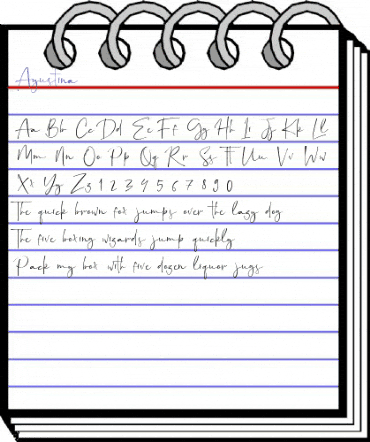 Agustina
Aa Bb Cc Dd Ee Ff Gg Hh Ii Jj Kk Ll
Mm Nn Oo Pp Qq Rr Ss Tt Uu Vv Ww
Xx Yy Zz 1 2 3 4 5 6 7 8 9 0
The quick brown fox jumps over the lazy dog
The five boxing wizards jump quickly
Pack my box with five dozen liquor jugs